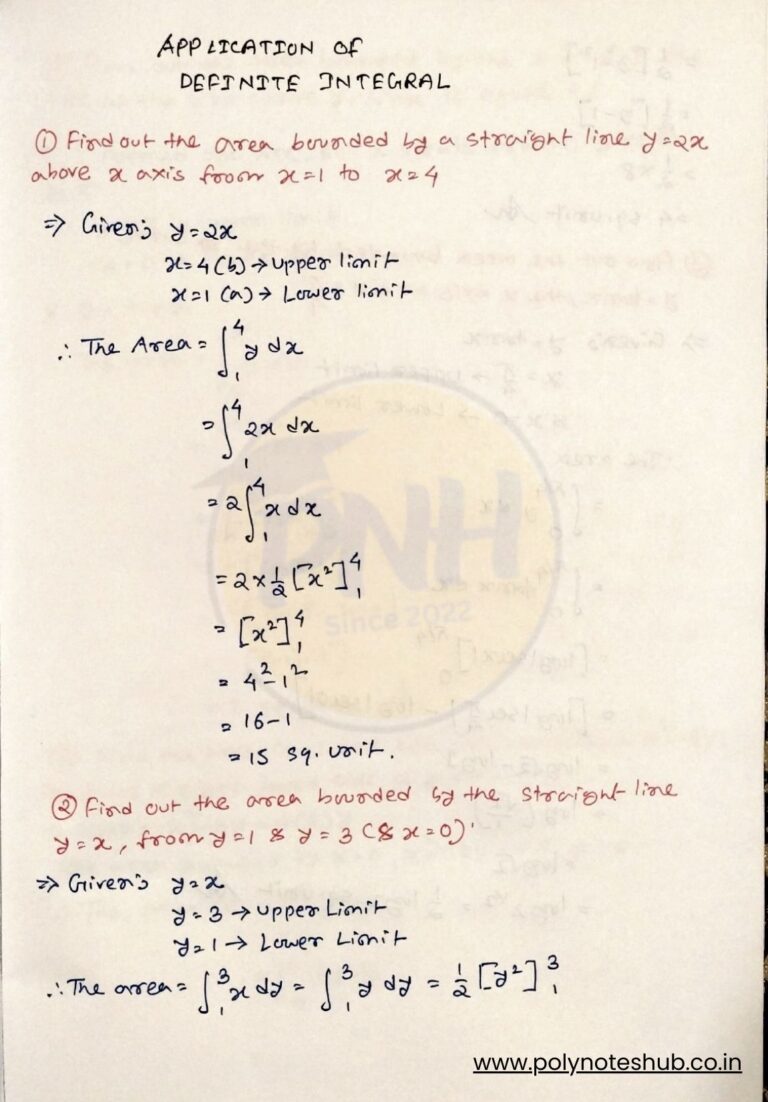 APPLICATION OF
DEFINITE INTEGRAL
① Find out the area bounded by a straight line y=2x
above x axis from x=1 to x=4
⇒ Given; y=2x
x=4 (b) → Upper limit
x=1 (a) → Lower limit
∴ The Area = ∫₁⁴ y dx
= ∫₁⁴ 2x dx
= 2∫₁⁴ x dx
= 2 × ½ [x²]₁⁴
= [x²]₁⁴
= 4² - 1²
= 16-1
= 15 sq. unit.
② Find out the area bounded by the straight line
y=x, from y=1 & y=3 (& x=0)
⇒ Given; y=x
y=3 → Upper Limit
y=1 → Lower Limit
∴ The area = ∫₁³ x dy = ∫₁³ y dy = ½ [y²]₁³
PNH
Since 2022
www.polynoteshub.co.in